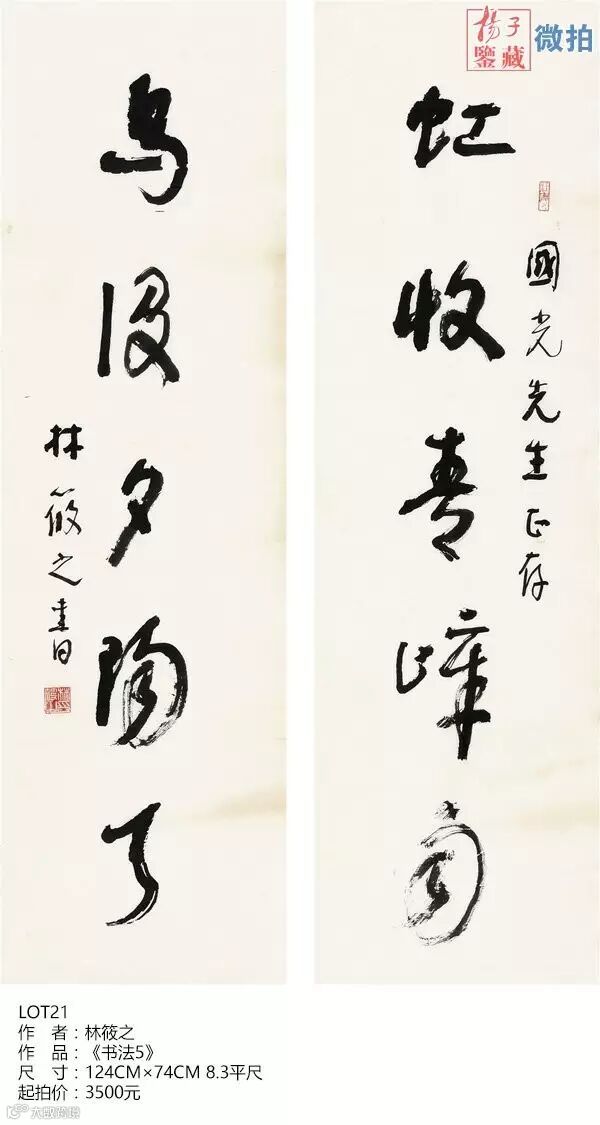 揚子
鑒藏
微拍
國光先生正存
虹收青嶂雨
鳥没夕陽天
林筱之書
LOT21
作 者：林筱之
作 品：《书法5》
尺 寸：124CM×74CM 8.3平尺
起拍价：3500元